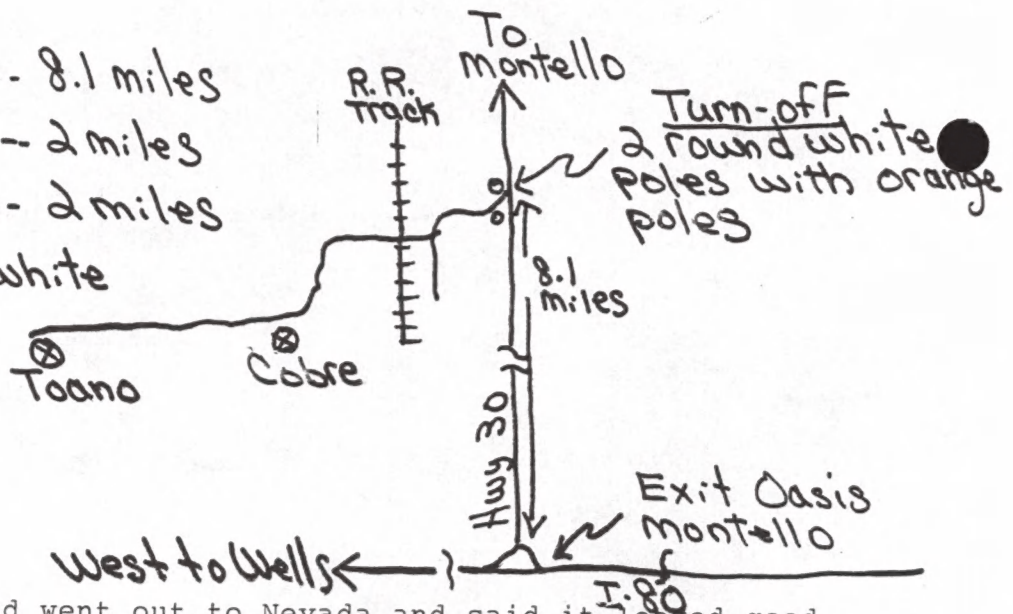 To
montello
- 8.1 miles
-- 2 miles
- 2 miles
white
R.R.
Track
Turn-off
2 round white
poles with orange
poles
8.1
miles
Toano
Cobre
Hwy 30
Exit Oasis
montello
West to Wells
I-80
d went out to Nevada and said it looked good